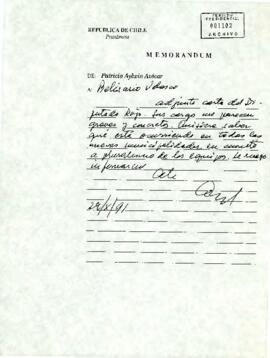 PERIODO
PRESIDENCIAL
001102
ARCHIVO
REPUBLICA DE CHILE
Presidencia
MEMORANDUM
DE: Patricio Aylwin Azócar
A: Belisario Velasco
adjunto carta del Di-
putado Rojo. Sus cargos me parecen
graves y concretos. Quisiera saber
que está ocurriendo en todas las
nuevas municipalidades en cuanto
a pluralismo de los equipos. Le ruego
informarme
Atte